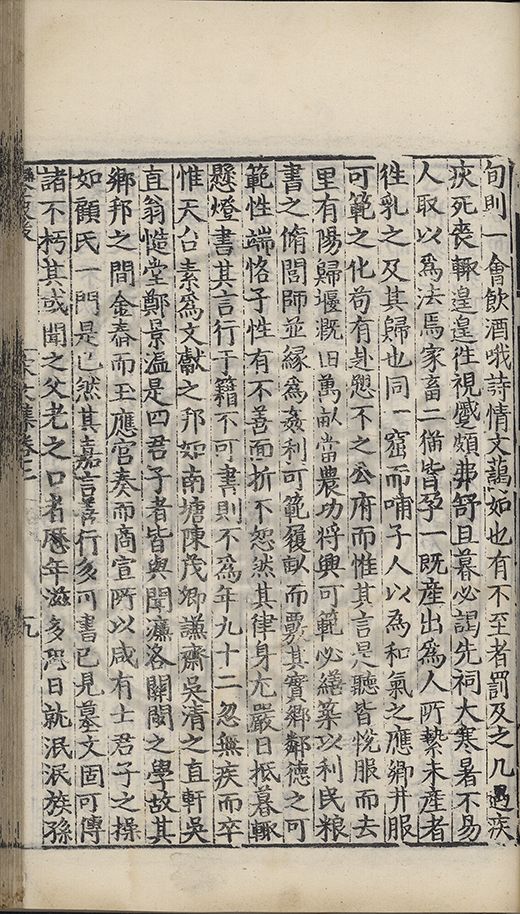 旬則一會飲酒哦詩情文藹如也有不至者罰及之凡遇疾
疢死喪輒遑遑徃視蹙頞弗舒旦暮必謁先祠大寒暑不易
人取以爲法焉家畜二猫皆孕一既產出爲人所縶未產者
徃乳之及其歸也同一窟而哺子人以為和氣之應鄉井服
可範之化苟有赴愬不之公府而惟其言是聽皆悅服而去
里有陽歸堰溉田萬畝當農功將興可範必繕築以利民粮
書之脩閭師並緣為姦利可範履畝而覈其實鄉鄰德之可
範性端恪子性有不善面折不恕然其律身尤嚴日抵暮輒
懸燈書其言行于籍不可書則不爲年九十二忽無疾而卒
惟天台素爲文獻之邦如南塘陳茂卿謙齋吳清之直軒吳
直翁慥堂鄭景溫是四君子者皆與聞濂洛關閩之學故其
鄉邦之間金舂而玉應宮奏而商宣所以咸有士君子之操
如顧氏一門是已然其嘉言善行多可書已見墓文固可傳
諸不朽其或聞之父老之口者歷年滋多恐日就泯泯族孫
九